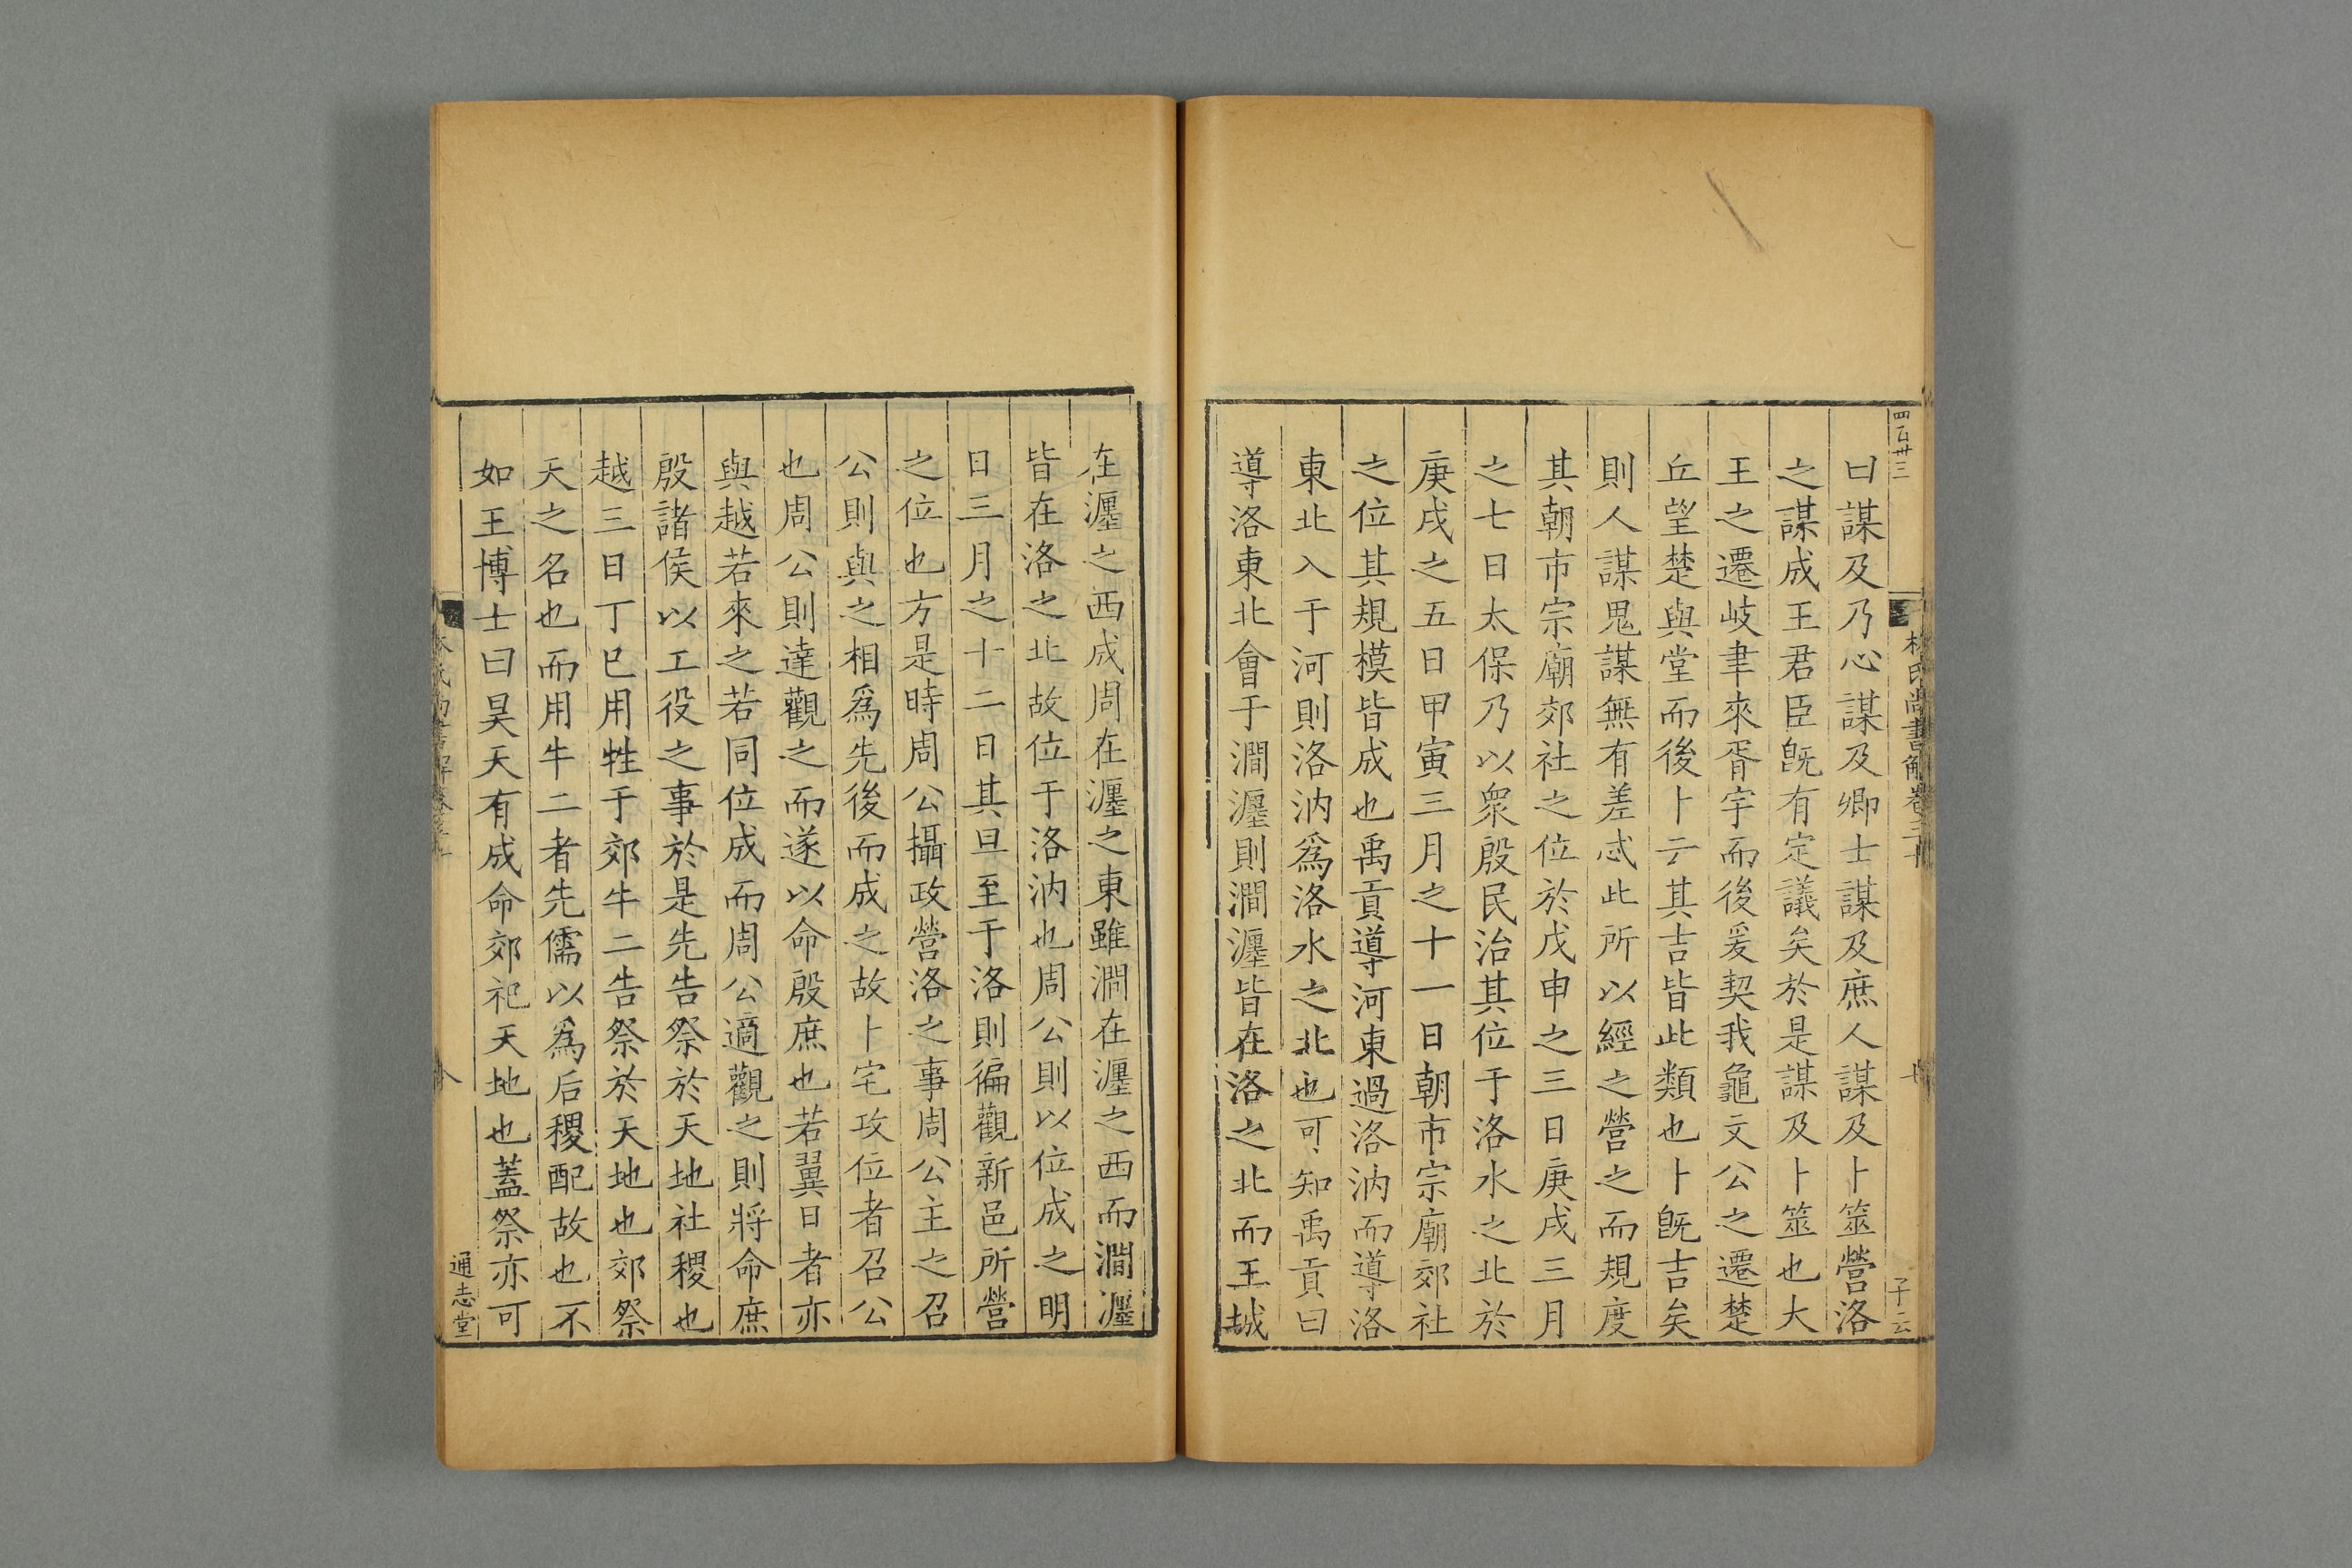 四百卅三
林氏尚書解卷三十
子云
曰謀及乃心謀及卿士謀及庶人謀及卜筮營洛
之謀成王君臣旣有定議矣於是謀及卜筮也大
王之遷岐聿來胥宇而後爰契我龜文公之遷楚
丘望楚與堂而後卜云其吉皆此類也卜旣吉矣
則人謀鬼謀無有差忒此所以經之營之而規度
其朝市宗廟郊社之位於戊申之三日庚戌三月
之七日太保乃以衆殷民治其位于洛水之北於
庚戌之五日甲寅三月之十一日朝市宗廟郊社
之位其規模皆成也禹貢導河東過洛汭而導洛
東北入于河則洛汭爲洛水之北也可知禹貢曰
導洛東北會于澗瀍則澗瀍皆在洛之北而王城
在瀍之西成周在瀍之東雖澗在瀍之西而澗瀍
皆在洛之北故位于洛汭也周公則以位成之明
日三月之十二日其旦至于洛則徧觀新邑所營
之位也方是時周公攝政營洛之事周公主之召
公則與之相爲先後而成之故卜宅攻位者召公
也周公則達觀之而遂以命殷庶也若翼日者亦
與越若來之若同位成而周公適觀之則將命庶
殷諸侯以工役之事於是先告祭於天地社稷也
越三日丁巳用牲于郊牛二告祭於天地也郊祭
天之名也而用牛二者先儒以爲后稷配故也不
如王博士曰昊天有成命郊祀天地也蓋祭亦可
通志堂